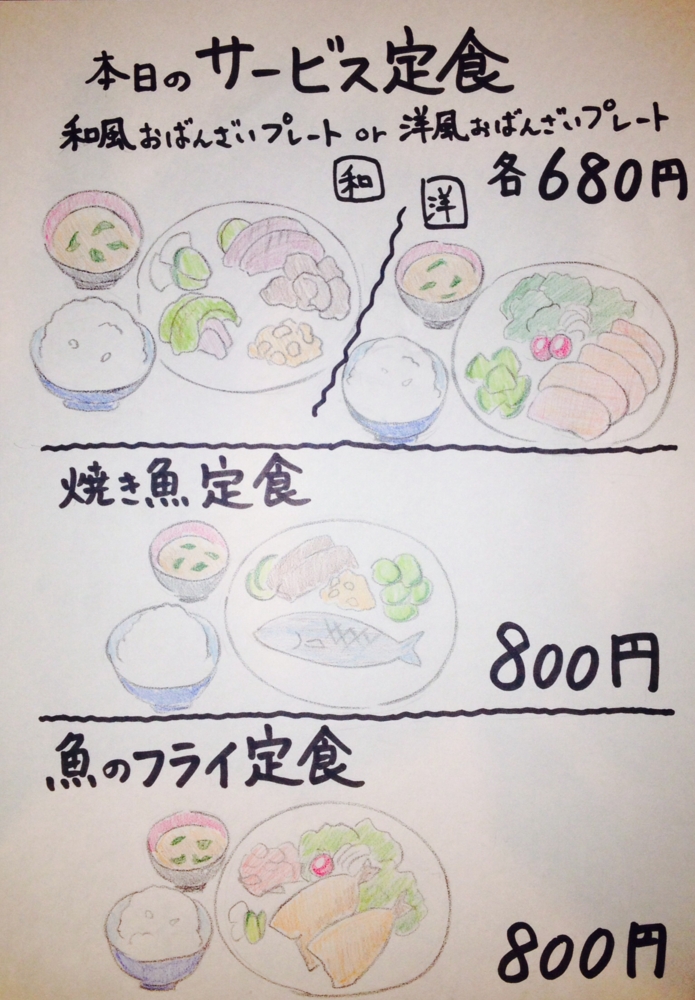 本日のサービス定食
和風おばんざいプレート or 洋風おばんざいプレート
各680円
和
洋
焼き魚定食
800円
魚のフライ定食
800円